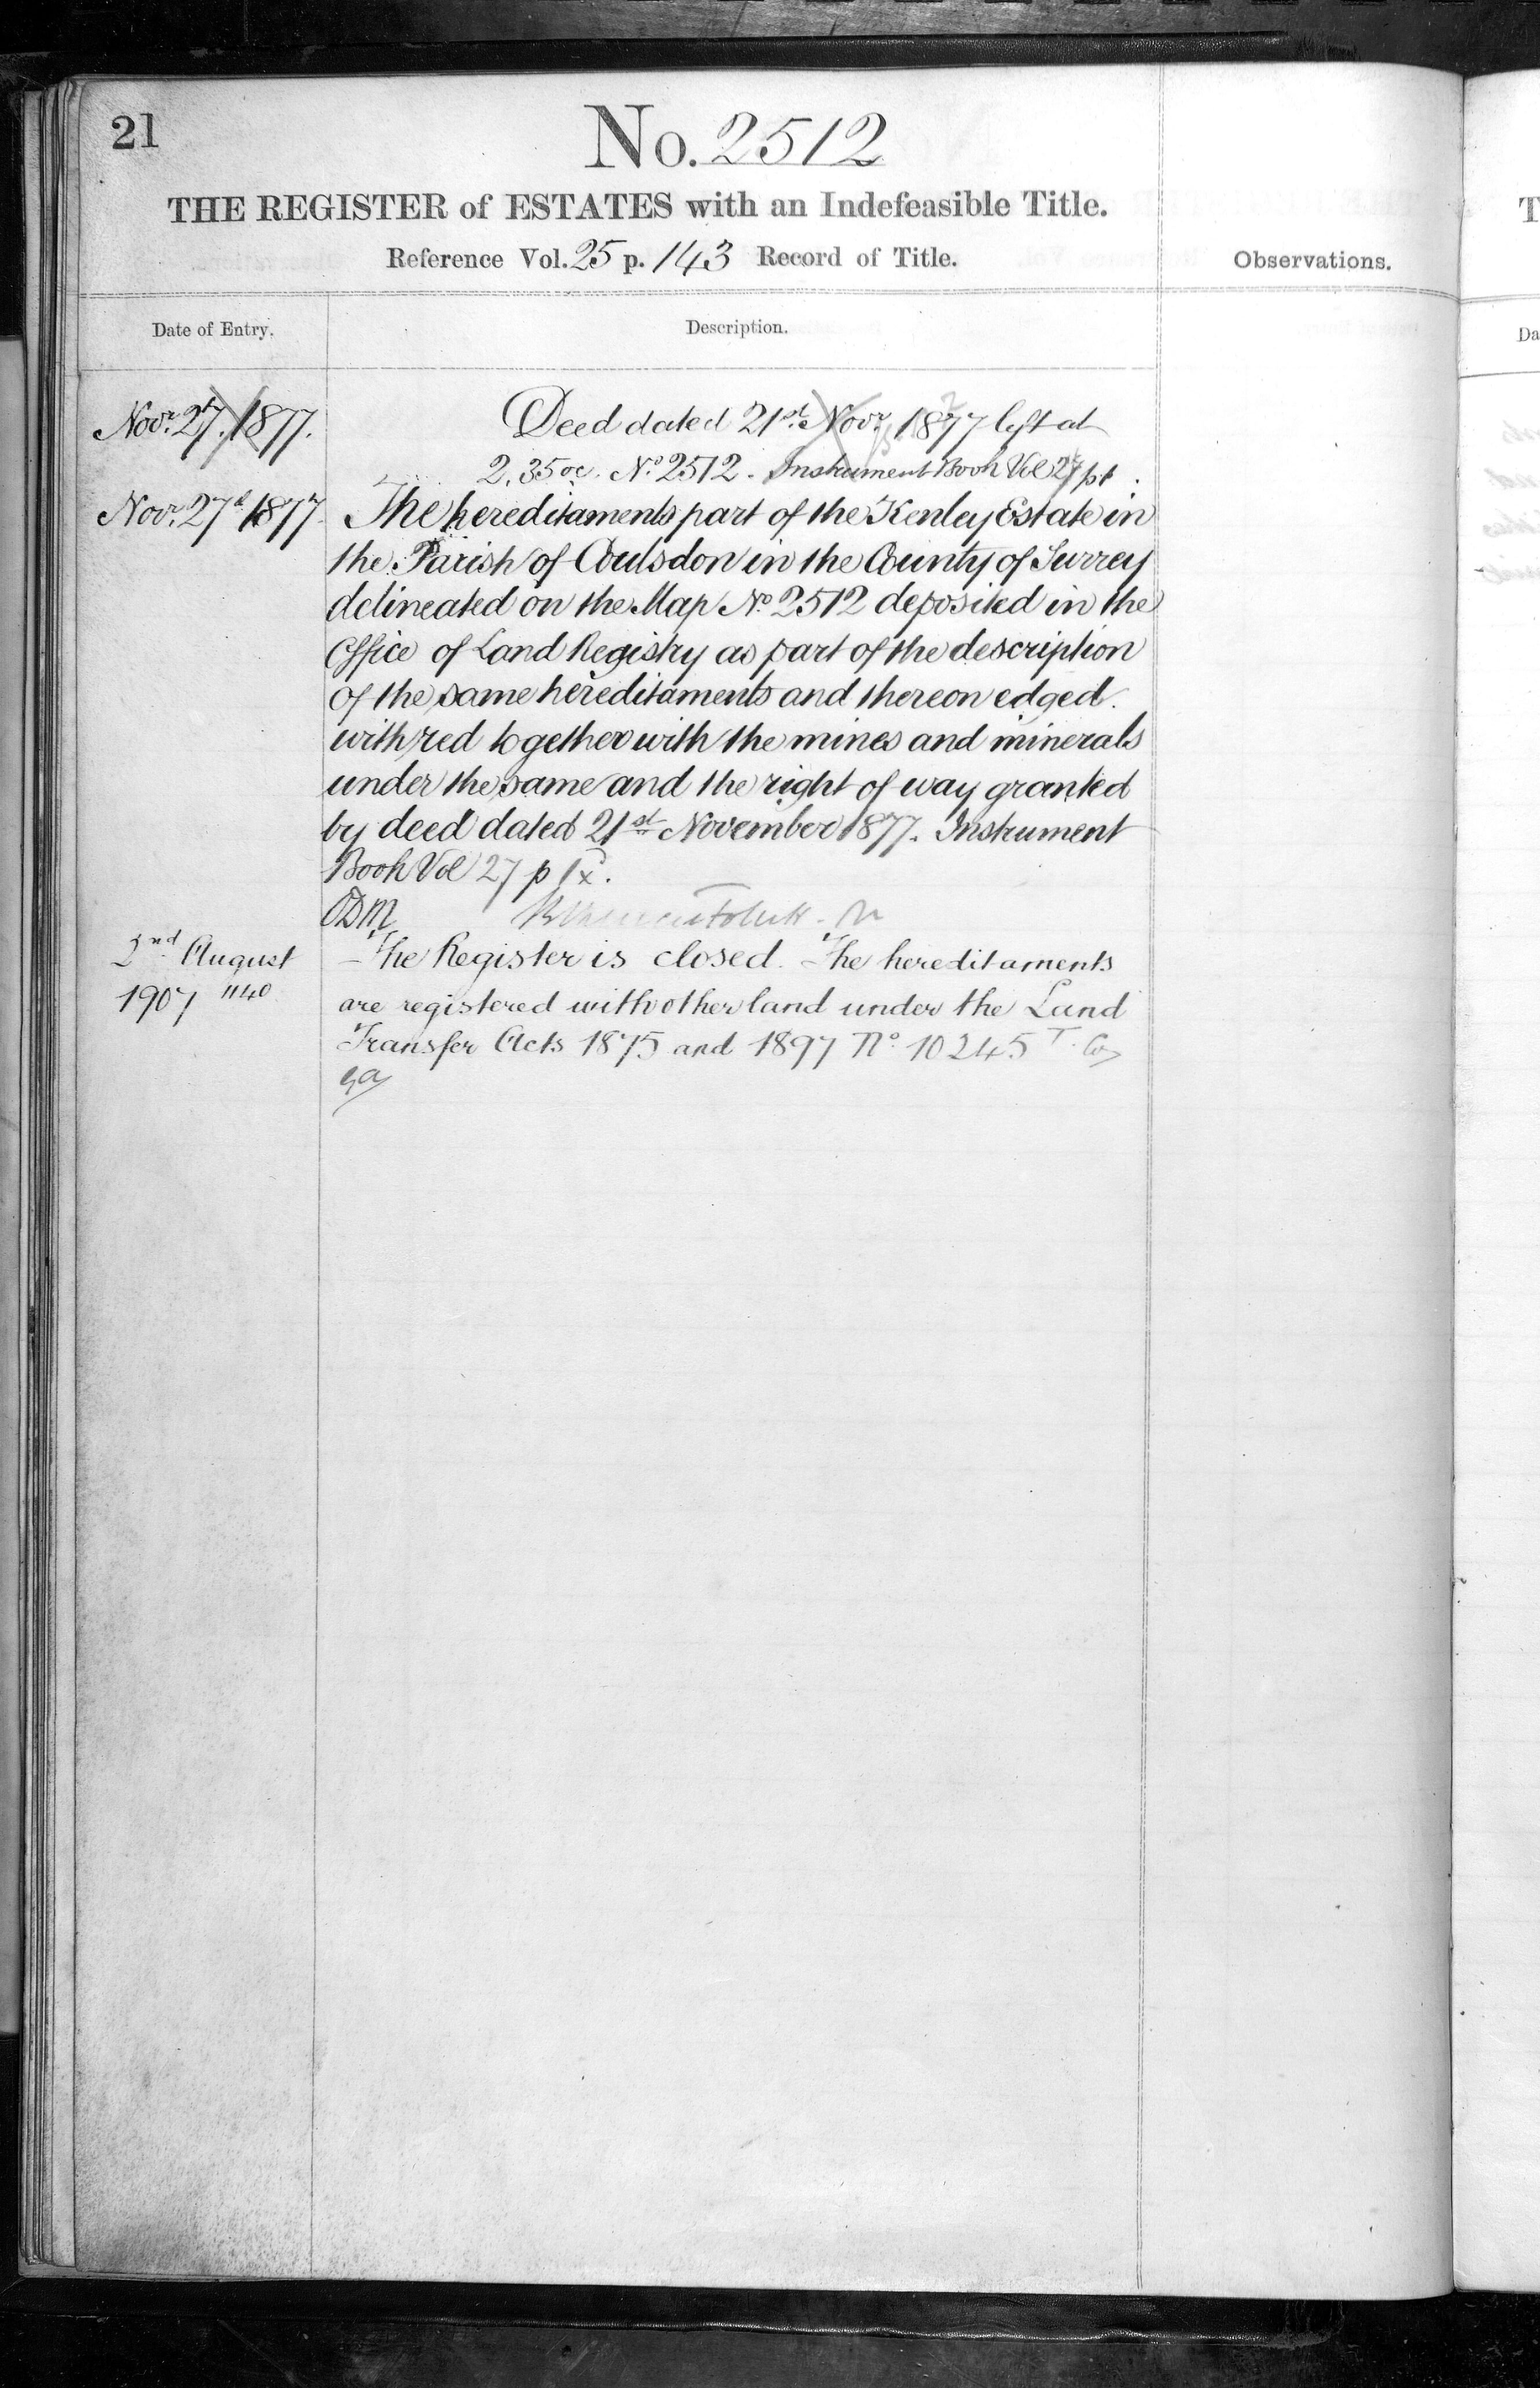 21
No. 2512
THE REGISTER of ESTATES with an Indefeasible Title.
Reference Vol. 25 p. 143 Record of Title.
Observations.
Date of Entry.
Description.
Novr. 27. 1877.
Deed dated 21st. Novr. 1877 left at
2.35 oc. No. 2512. Instrument Book Vol 27 p1.
Novr. 27th 1877
The hereditaments part of the Kenley Estate in
the Parish of Coulsdon in the County of Surrey
delineated on the Map No. 2512 deposited in the
Office of Land Registry as part of the description
of the same hereditaments and thereon edged
with red together with the mines and minerals
under the same and the right of way granted
by deed dated 21st November 1877. Instrument
Book Vol 27 p 1
2nd August
The Register is closed. The hereditaments
1907 1140
are registered with other land under the Land
Transfer Acts 1875 and 1897 No. 10245